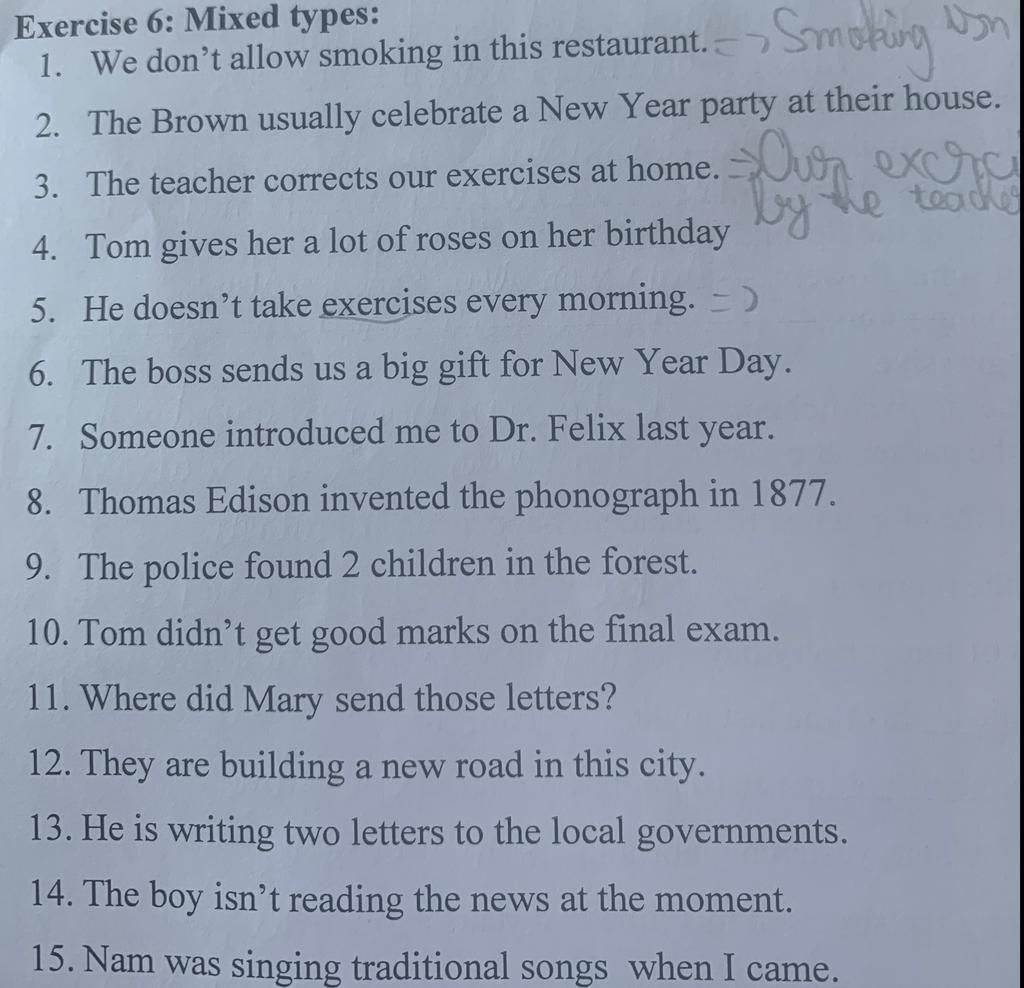 Exercise 6: Mixed types:
1. We don't allow smoking in this restaurant. => Smoking
2. The Brown usually celebrate a New Year party at their house.
3. The teacher corrects our exercises at home. => Our
by the teacher
4. Tom gives her a lot of roses on her birthday
5. He doesn't take exercises every morning. =>
6. The boss sends us a big gift for New Year Day.
7. Someone introduced me to Dr. Felix last year.
8. Thomas Edison invented the phonograph in 1877.
9. The police found 2 children in the forest.
10. Tom didn't get good marks on the final exam.
11. Where did Mary send those letters?
12. They are building a new road in this city.
13. He is writing two letters to the local governments.
14. The boy isn't reading the news at the moment.
15. Nam was singing traditional songs when I came.